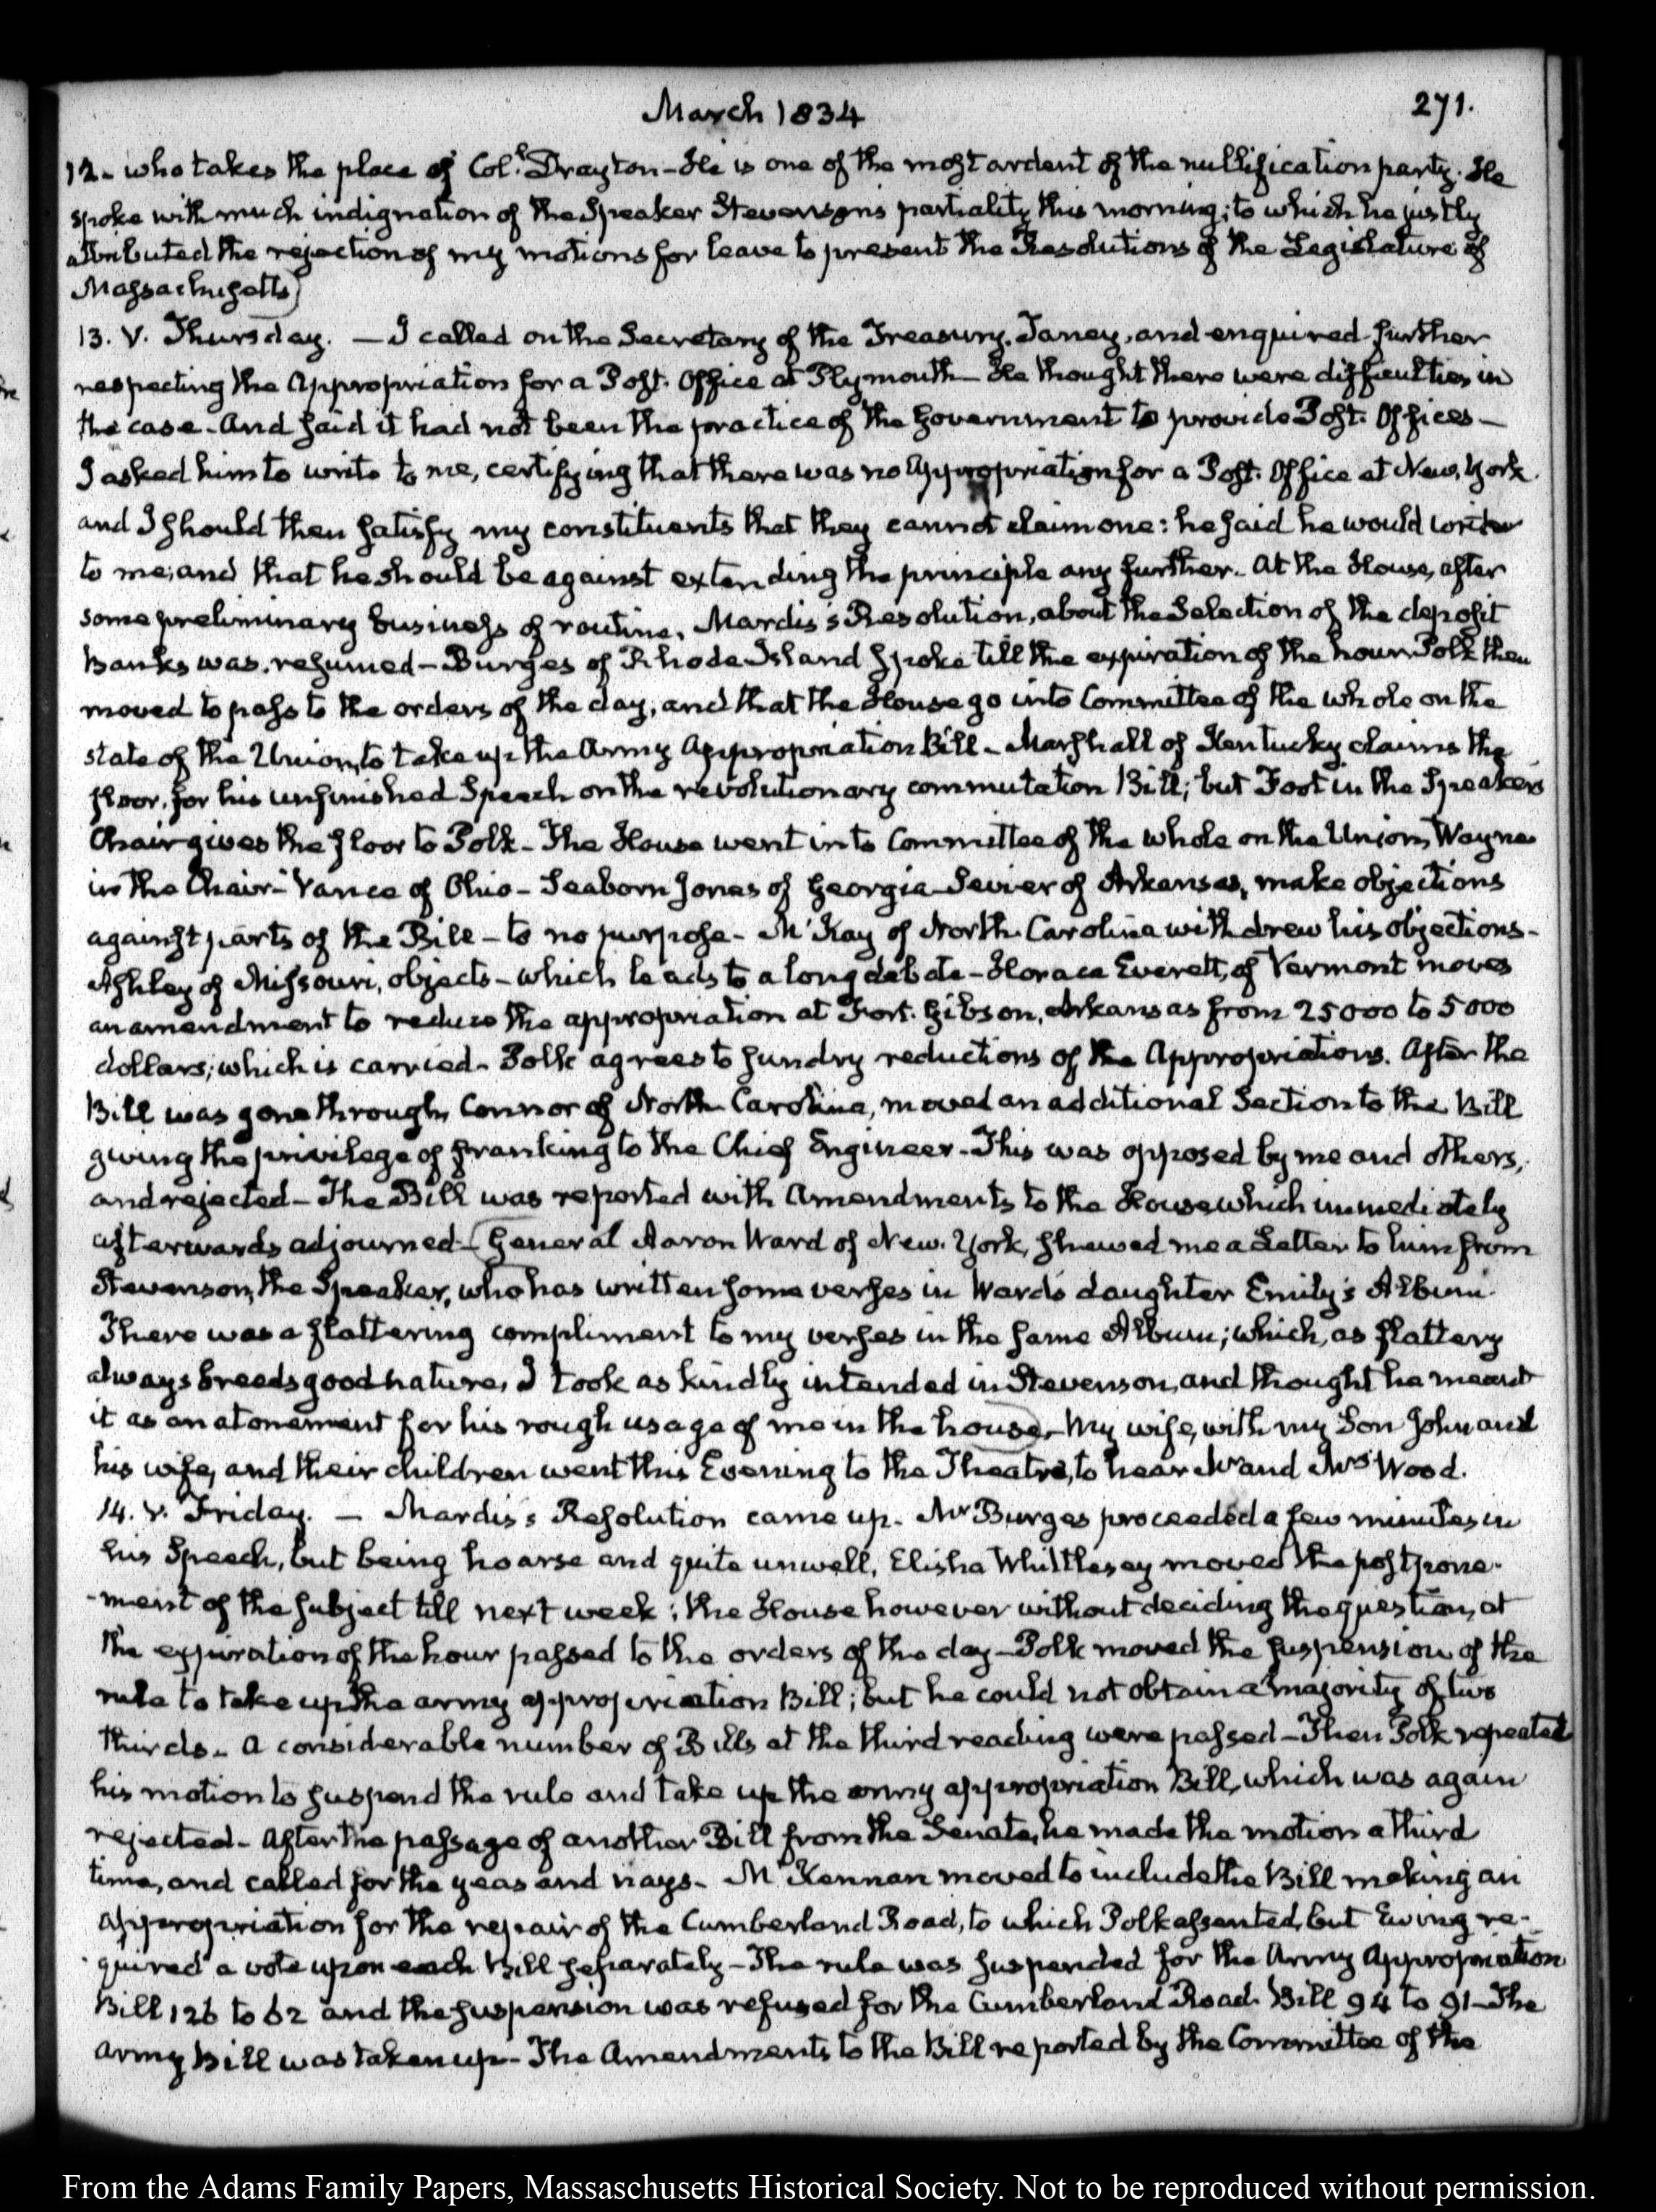 March 1834
271.
12. who takes the place of Coll. Drayton – He is one of the most ardent of the nullification party. He
spoke with much indignation of the Speaker Stevenson's partiality this morning; to which he justly
attributed the rejection of my motions for leave to present the Resolutions of the Legislature of
Massachusetts)
13. V. Thursday. — I called on the Secretary of the Treasury, Taney, and enquired further
respecting the Appropriation for a Post. Office at Plymouth – He thought there were difficulties in
the case – And said it had not been the practice of the Government to provide Post. Offices –
I asked him to write to me, certifying that there was no Appropriation for a Post. Office at New York.
and I should then satisfy my constituents that they cannot claim one: he said he would write
to me; and that he should be against extending the principle any further. At the House, after
some preliminary business of routine, Mardis's Resolution, about the Selection of the deposit
Banks was resumed – Burges of Rhode Island spoke till the expiration of the hour. Polk then
moved to pass to the orders of the day, and that the House go into Committee of the whole on the
state of the Union, to take up the Army Appropriation Bill – Marshall of Kentucky claims the
floor, for his unfinished Speech on the revolutionary commutation Bill; but Foot in the Speakers
Chair gives the floor to Polk – The House went into Committee of the whole on the Union, Wayne
in the Chair – Vance of Ohio – Seaborn Jones of Georgia – Sevier of Arkansas, make objections
against parts of the Bill – to no purpose – McKay of North Carolina withdrew his objections –
Ashley of Missouri, objects – which leads to a long debate – Horace Everett, of Vermont moves
an amendment to reduce the appropriation at Fort. Gibson, Arkansas from 25000 to 5000
dollars; which is carried – Polk agrees to sundry reductions of the Appropriations. After the
Bill was gone through, Connor of North Carolina, moved an additional Section to the Bill
giving the privilege of franking to the Chief Engineer – This was opposed by me and others,
and rejected – The Bill was reported with Amendments to the House, which immediately
afterwards adjourned – (General Aaron Ward of New. York, shewed me a Letter to him from
Stevenson, the Speaker, who has written some verses in Ward's daughter Emily's Album.
There was a flattering compliment to my verses in the same Album; which, as flattery
always breeds good nature, I took as kindly intended in Stevenson, and thought he meant
it as an atonement for his rough usage of me in the house) – My wife, with my Son John and
his wife, and their children went this Evening to the Theatre, to hear Mr and Mrs Wood.
14. V. Friday. — Mardis's Resolution came up. Mr Burges proceeded a few minutes in
his Speech, but being hoarse and quite unwell, Elisha Whittlesey moved the postpone-
-ment of the subject till next week; the House however without deciding the question, at
the expiration of the hour passed to the orders of the day – Polk moved the suspension of the
rule to take up the army appropriation Bill; but he could not obtain a majority of two
thirds – A considerable number of Bills at the third reading were passed – Then Polk repeated
his motion to suspend the rule and take up the army appropriation Bill, which was again
rejected – After the passage of another Bill from the Senate, he made the motion a third
time, and called for the yeas and nays – McKennan moved to include the Bill making an
appropriation for the repair of the Cumberland Road, to which Polk assented, but Ewing re-
-quired a vote upon each Bill separately – The rule was suspended for the Army Appropriation
Bill 126 to 62 and the suspension was refused for the Cumberland Road. Bill 94 to 91 – The
army Bill was taken up – The Amendments to the Bill reported by the Committee of the
From the Adams Family Papers, Massachusetts Historical Society. Not to be reproduced without permission.